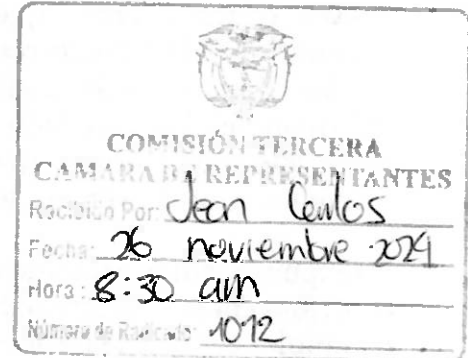 COMISIÓN TERCERA
CAMARA DE REPRESENTANTES
Recibido Por: Jean Carlos
Fecha: 26 noviembre 2024
Hora: 8:30 am
Número de Radicado: 1012